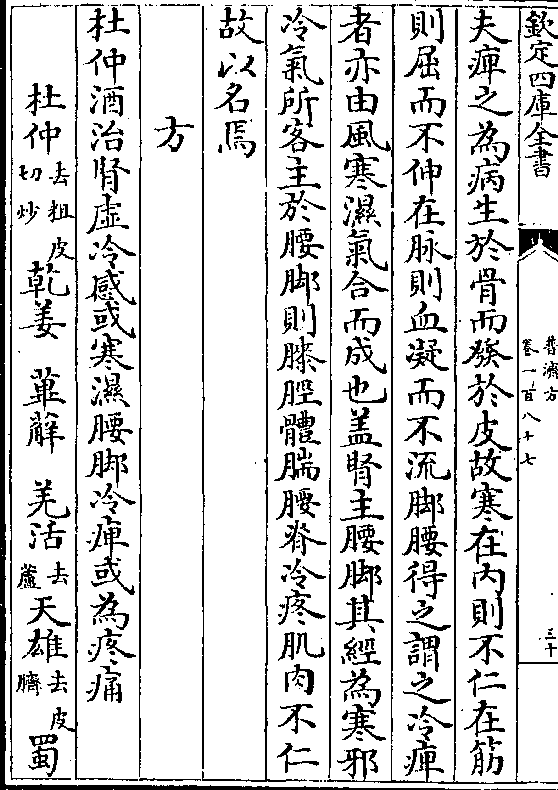 欽定四庫全書
普濟方
卷一百八十七
三十
夫痺之為病生於骨而發於皮故寒在內則不仁在筋
則屈而不伸在脉則血凝而不流脚腰得之謂之冷痺
者亦由風寒濕氣合而成也盖腎主腰脚其經為寒邪
冷氣所客主於腰脚則膝脛體腨腰脊冷疼肌肉不仁
故以名焉
方
杜仲酒治腎虛冷感或寒濕腰脚冷痺或為疼痛
杜仲去粗皮切炒 乾姜 萆薢 羌活去蘆 天雄去皮臍 蜀